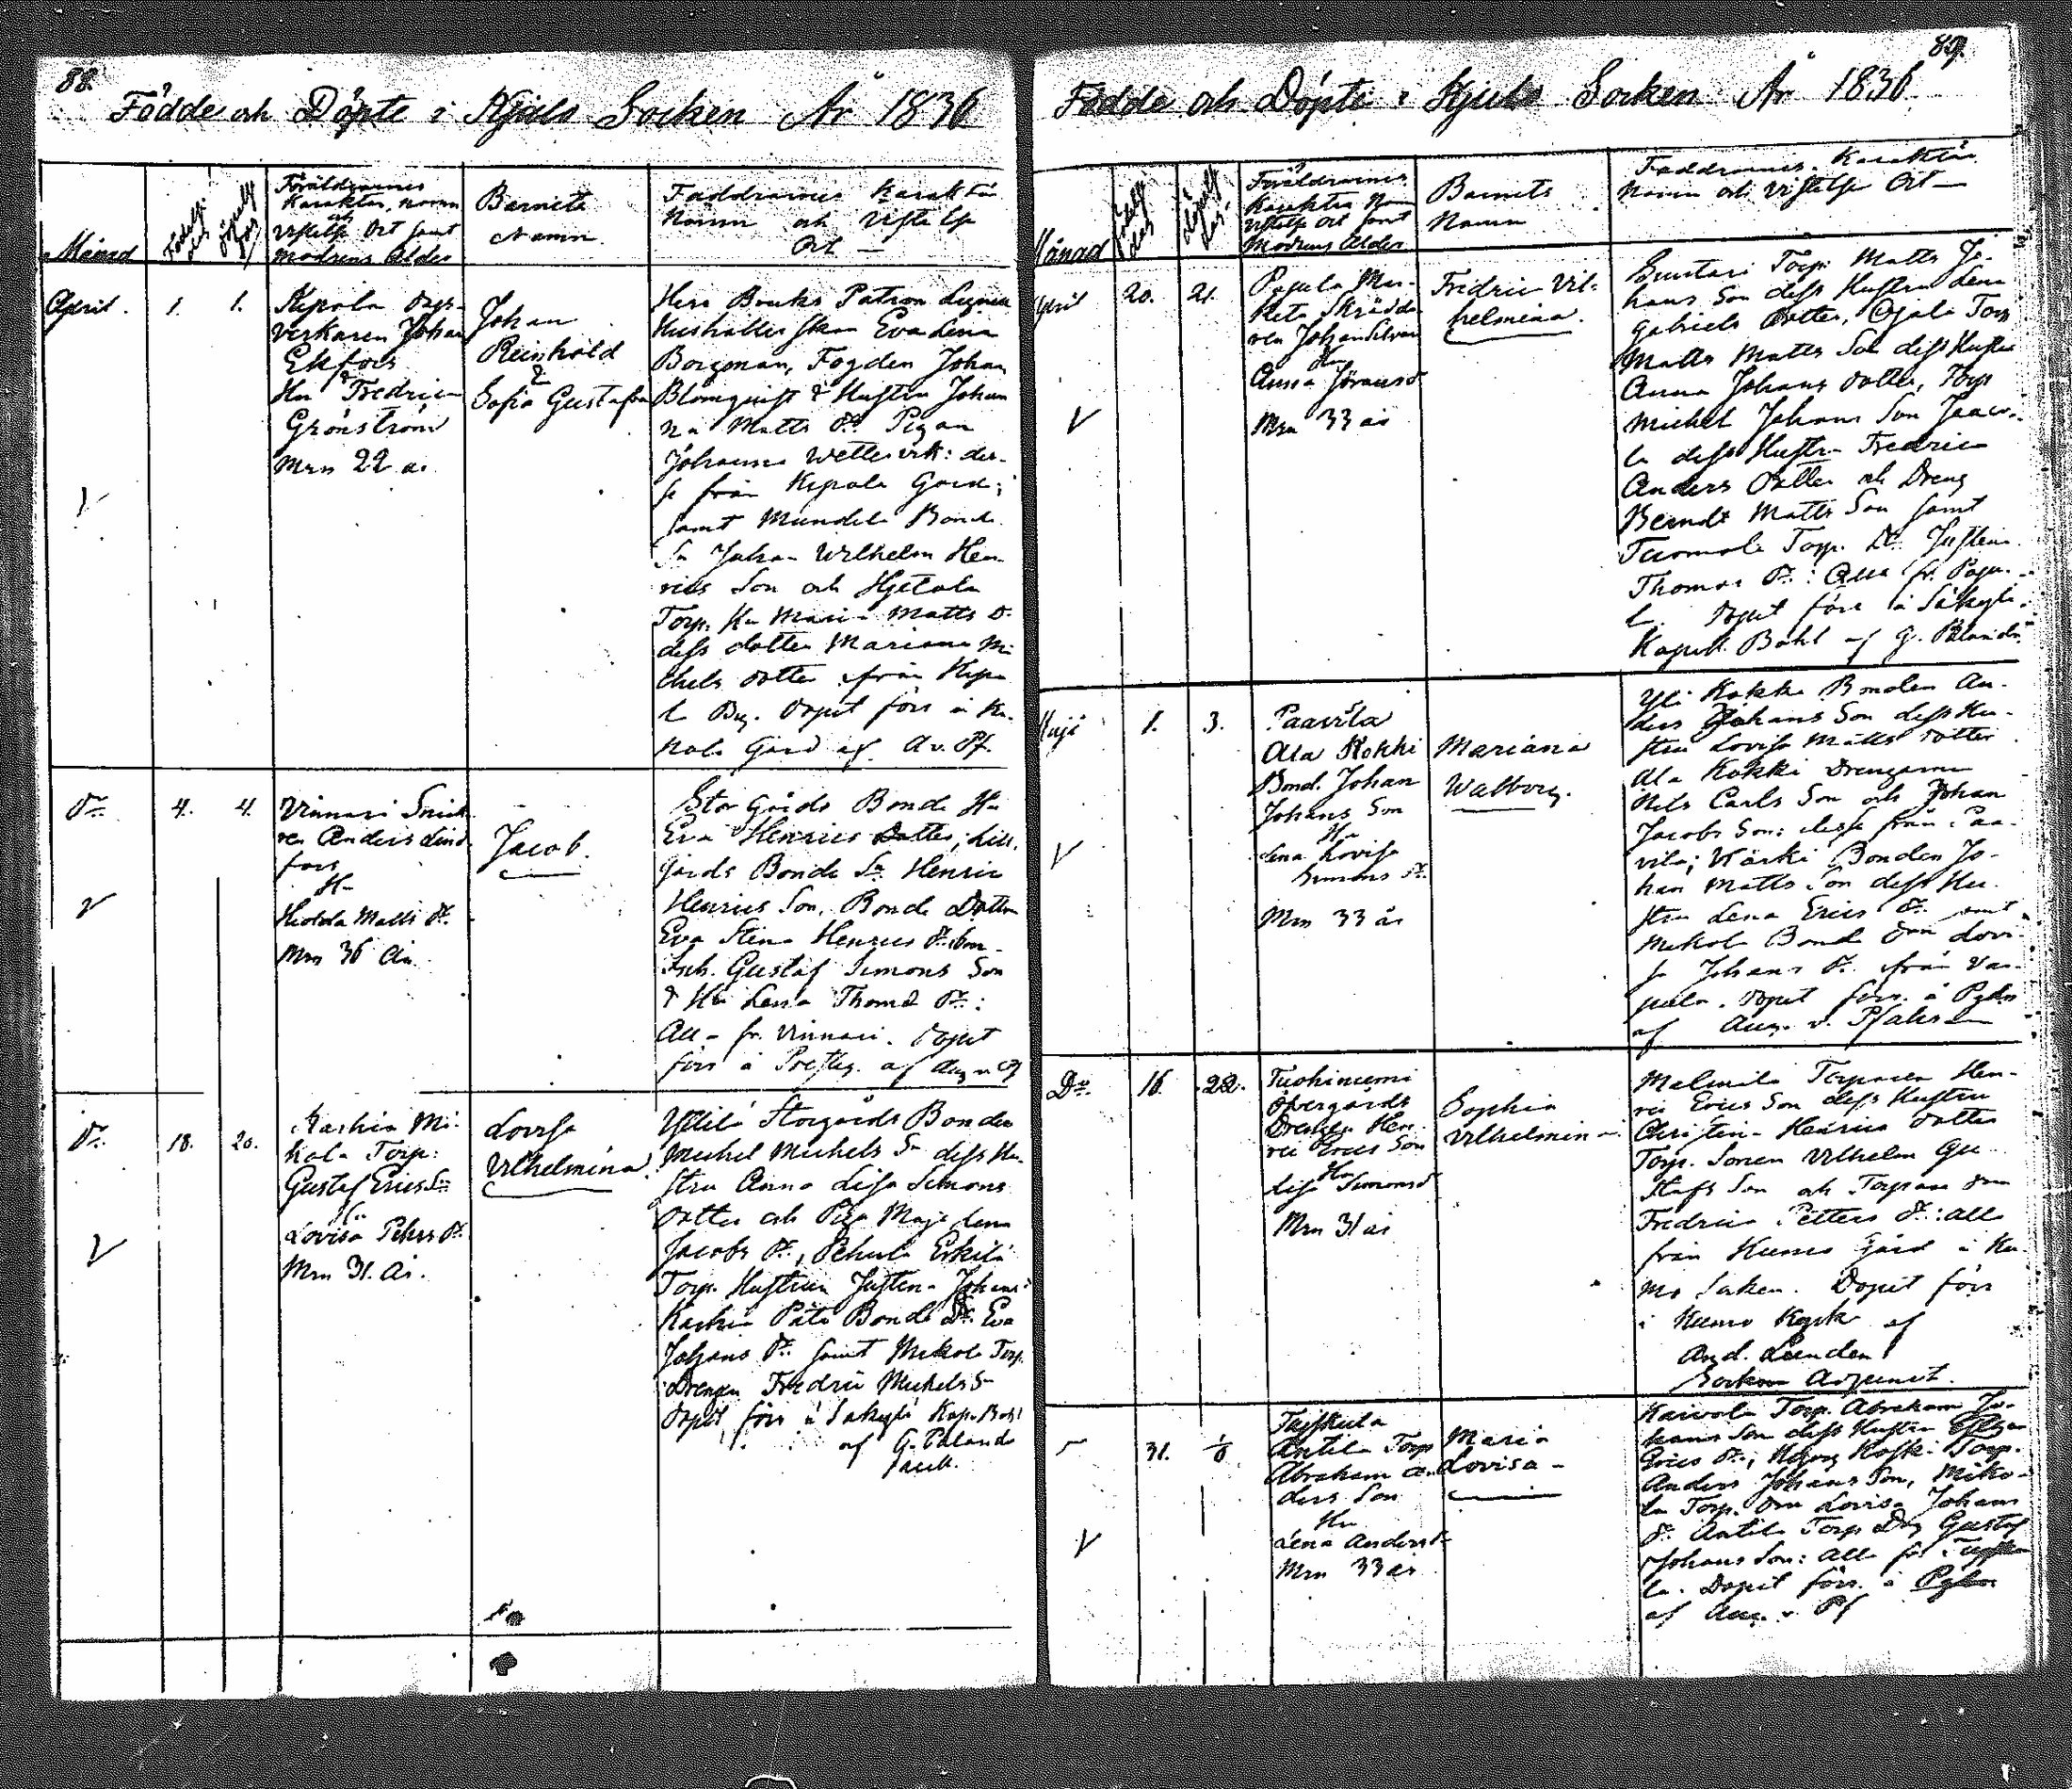 88.
Födde och Döpte i Kjulo Socken År 1836
Månad
Födelse dag
Döpelse dag
Föräldrarnes
Karakter, namn
och
Vistelse Ort samt
modrens Ålder
Barnets
Namn.
Faddrarnes Karaktär
Namn och Vistelse
Ort —
April.
1.
1.
Johan
Ekfors
Hu Fredrica
Grönström
Mrn 22 år
Johan
Reinhold
&
Sofia Gustafva
Herr Bruks Patron
Eva Lena
Borgman, Fogden Johan
Blomquist & Hustru Johan
na Matts Dr. Pigan
Johanna
se från Kepola Gård;
samt Mundela Bonde
Sn Johan Wilhelm Hen
rics Son och Hjetala
Torp. Hu Maria Matts D.
dess dotter Mariana Mi
chels dotter från Kepo
la By. Dopet förr. å Ke-
pola Gård af A.v. Pf.
Dr.
4.
4.
Vinnari Snick
ren Anders Lind
fors
Hu
Hedda Matts Dr.
Mrn 36 år
Jacob.
Stor Gårds Bonde Hu
Eva Henrics Dotter, Lill
gårds Bonde Sn Henric
Henrics Son, Bonde Dottren
Eva Stina Henrics Dr.
Inh. Gustaf Simons Son
& Hu Lena Thoms Dr.:
Alla fr. Vinnari. Dopet
förr. å Prestg. af Aug v Pf
Dr.
18.
20.
Kaskia Mi-
kola Torp:
Gustaf Erics Sn
Hu
Lovisa Pehrs Dr.
Mrn 31. år.
Lovisa
Vilhelmina.
Storgårds Bonden
Michel Michels Sn dess Hu-
stru Anna Lisa Simons
dotter och Piga Maja Lena
Jacobs Dr., Pehula Erkilä
Torp. Hustrun Justina Johans
Kaskia Päto Bonde Dr. Eva
Johans Dr. samt Mikola Torp.
Drengen Fredric Michels S-
Dopet förr. i Säkylä Kap. Bohl
af G. Paland

89.
Födde och Döpte i Kjulo Socken År 1836.
Månad
Födelse dag
Döpelse dag
Föräldrarnes
Karakter Namn
Vistelse Ort samt
Modrens Ålder
Barnets
Namn
Faddrarnes Karaktär
Namn och Vistelse Ort —
April
20.
21.
Pajula Mar-
keta Skrädda
ren Johan Silvan
Hu
Anna Jöransd
Mrn 33 år
Fredrica Vil-
helmina.
Suutari Torp. Matts Jo-
hans Son dess Hustru Lena
Gabriels dotter, Ojala Torp
Matts Matts Son dess Hustru
Anna Johans dotter, Torp
Michel Johans Son Jaaco-
la dess Hustru Fredrica
Anders Dotter och Dreng
Berndt Matts Son samt
Tuomola Torp. Dr. Justina
Thomas Dr.: Alla fr. Paju-
la. Dopet förr. i Säkylä
Kapell Bohl af G. Palander
Maji
1.
3.
Paavila
Ala Kokki
Bond. Johan
Johans Son
Hu
Lena Lovisa
Simons Dr.
Mrn 33 år
Mariana
Walborg.
Yli Kokki Bonden An-
ders Johans Son dess Hu-
stru Lovisa Matts dotter
Ala Kokki Drengarne
Nils Carls Son och Johan
Jacobs Son: desse från Paa-
vila; Kärki Bonden Jo-
han Matts Son dess Hu-
stru Lena Erics Dr. samt
Mikola Bonde Drn Lovi-
sa Johans Dr. från
Dopet förr. å Pgdn
af Aug. v. Pfaler
Dr.
16.
22.
Tuohiniemi
Öfvergårds
Drengen Hen-
ric Erics Son
Hu
Lisa Simonsd
Mrn 31 år
Sophia
Vilhelmina
Malmila Torparen Hen-
ric Erics Son dess Hustru
Christina Henrics dotter
Torp. Sonen Vilhelm Gu-
stafs Son och Torpare Drn
Fredrica Petters Dr.: alla
från Kumo Gård i Ku-
mo Socken. Dopet förr
i Kumo Kyrka af
And. Lunden
Socken Adjunct.
31.
Antila Torp
Abraham An-
ders Son
Hu
Lena Andersd-
Mrn 33 år
Maria
Lovisa -
Kaivola Torp. Abraham Jo-
hans Son dess Hustru
Erics Dr.; Koski Torp.
Anders Johans Son, Miko-
la Torp. Drn Lovisa Johans
Dr. Antila Torp Drg Gustaf
Johans Son: alla fr.
la. Dopet förr. å Pgdn
af Aug. v Pf